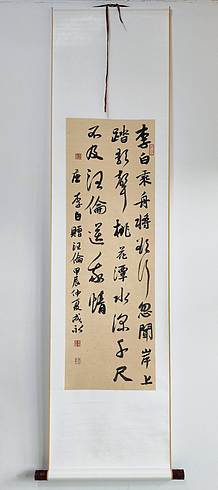 李白乘舟將欲行忽聞岸上
踏歌聲桃花潭水深千尺
不及汪倫送我情
唐李白贈汪倫甲辰仲夏